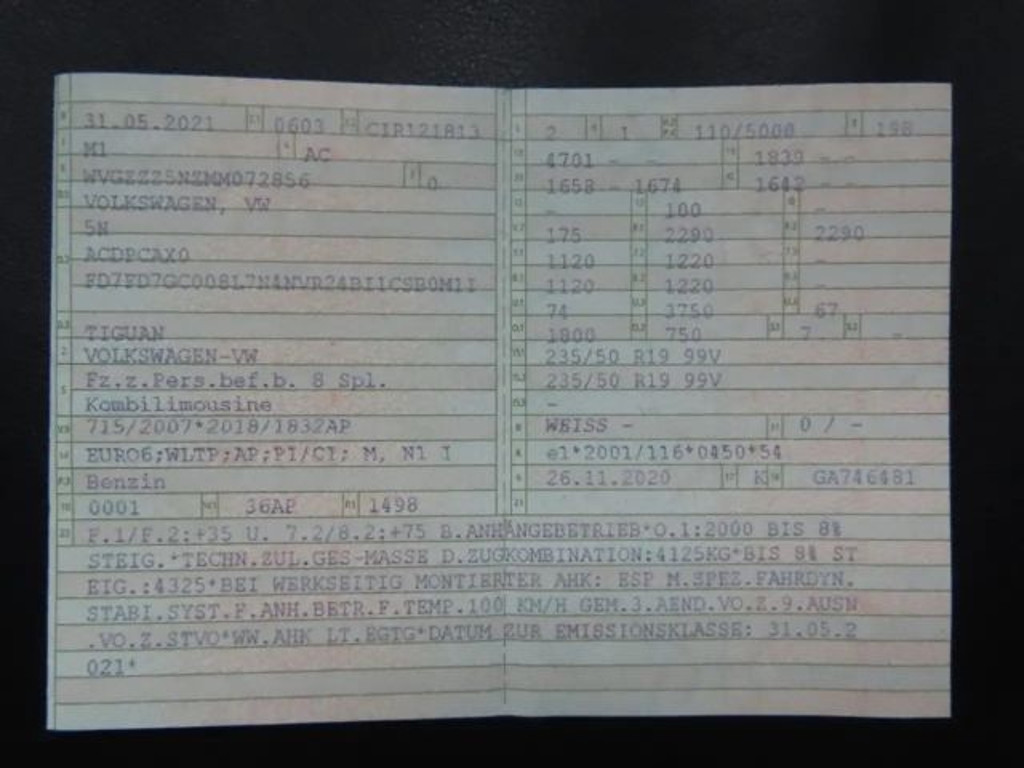 31.05.2021 0603 CIR121813
M1 AC
WVGZZZ5NZMM072856 0
VOLKSWAGEN, VW
5N
ACDPCAX0
FD7FD7GC008L7N4NVR24BI1CSB0M1I
TIGUAN
VOLKSWAGEN-VW
Fz.z.Pers.bef.b. 8 Spl.
Kombilimousine
715/2007*2018/1832AP
EURO6;WLTP;AP;PI/CI; M, N1 I
Benzin
0001 36AP 1498
2 1 110/5000 198
4701 - - 1839 - -
1658 - 1674 1642 - -
- 100 -
175 2290 2290
1120 1220 -
1120 1220 -
74 3750 67
1800 750 7 -
235/50 R19 99V
235/50 R19 99V
-
WEISS - 0 / -
e1*2001/116*0450*54
26.11.2020 K GA746481
F.1/F.2:+35 U. 7.2/8.2:+75 B.ANHÄNGEBETRIEB*O.1:2000 BIS 8%
STEIG.*TECHN.ZUL.GES-MASSE D.ZUGKOMBINATION:4125KG*BIS 8% ST
EIG.:4325*BEI WERKSEITIG MONTIERTER AHK: ESP M.SPEZ.FAHRDYN.
STABI.SYST.F.ANH.BETR.F.TEMP.100 KM/H GEM.3.AEND.VO.Z.9.AUSN
.VO.Z.STVO*WW.AHK LT.EGTG*DATUM ZUR EMISSIONSKLASSE: 31.05.2
021*